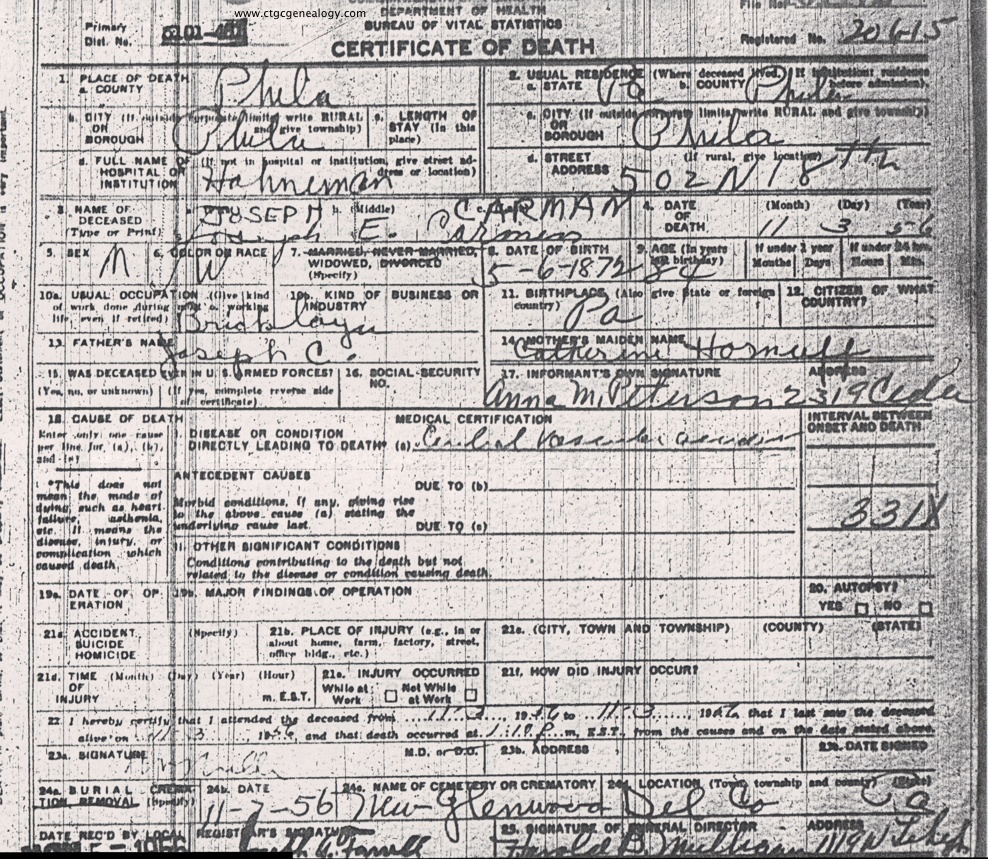 www.ctgcgenealogy.com
DEPARTMENT OF HEALTH
BUREAU OF VITAL STATISTICS
Primary
Dist. No.
File No.
Registered No. 20615
CERTIFICATE OF DEATH
1. PLACE OF DEATH
a. COUNTY Phila
2. USUAL RESIDENCE (Where deceased lived. If institution: residence before admission).
a. STATE Pa b. COUNTY Phila
b. CITY (If outside corporate limits, write RURAL and give township)
OR BOROUGH Phila
c. LENGTH OF STAY (in this place)
c. CITY (If outside corporate limits, write RURAL and give township)
OR BOROUGH Phila
d. FULL NAME OF HOSPITAL OR INSTITUTION (If not in hospital or institution, give street address or location)
Hahneman
d. STREET ADDRESS (If rural, give location)
502 N 18 th
3. NAME OF DECEASED (Type or Print)
a. JOSEPH b. (Middle) c. CARMAN
Joseph E. Carmen
4. DATE OF DEATH (Month) (Day) (Year)
11 3 56
5. SEX M
6. COLOR OR RACE W
7. MARRIED, NEVER MARRIED, WIDOWED, DIVORCED (Specify)
8. DATE OF BIRTH 5-6-1872
9. AGE (In years last birthday) 84
If under 1 year Months Days
If under 24 hrs. Hours Min.
10a. USUAL OCCUPATION (Give kind of work done during most of working life, even if retired)
Bricklayer
10b. KIND OF BUSINESS OR INDUSTRY
11. BIRTHPLACE (Also give State or foreign country) Pa
12. CITIZEN OF WHAT COUNTRY?
13. FATHER'S NAME Joseph C.
14. MOTHER'S MAIDEN NAME Catherine Hornuff
15. WAS DECEASED EVER IN U. S. ARMED FORCES?
(Yes, no, or unknown) (If yes, complete reverse side of certificate)
16. SOCIAL SECURITY NO.
17. INFORMANT'S OWN SIGNATURE ADDRESS
Anna M. Petterson 2319 Cedar
18. CAUSE OF DEATH
Enter only one cause per line for (a), (b), and (c)
MEDICAL CERTIFICATION
INTERVAL BETWEEN ONSET AND DEATH
I. DISEASE OR CONDITION DIRECTLY LEADING TO DEATH* (a) Cerebral vascular accident
*This does not mean the mode of dying, such as heart failure, asthenia, etc. It means the disease, injury, or complication which caused death.
ANTECEDENT CAUSES
DUE TO (b)
Morbid conditions, if any, giving rise to the above cause (a) stating the underlying cause last.
DUE TO (c)
331X
II. OTHER SIGNIFICANT CONDITIONS
Conditions contributing to the death but not related to the disease or condition causing death.
19a. DATE OF OPERATION
19b. MAJOR FINDINGS OF OPERATION
20. AUTOPSY?
YES NO
21a. ACCIDENT SUICIDE HOMICIDE (Specify)
21b. PLACE OF INJURY (e.g., in or about home, farm, factory, street, office bldg., etc.)
21c. (CITY, TOWN AND TOWNSHIP) (COUNTY) (STATE)
21d. TIME OF INJURY (Month) (Day) (Year) (Hour) m. E.S.T.
21e. INJURY OCCURRED
While at Work Not While at Work
21f. HOW DID INJURY OCCUR?
22. I hereby certify that I attended the deceased from 11-3, 1956 to 11-3, 1956, that I last saw the deceased
alive on 11-3 1956, and that death occurred at 1:10 P m, E.S.T., from the causes and on the date stated above.
23a. SIGNATURE M.D. or D.O.
23b. ADDRESS
DATE SIGNED
24a. BURIAL, CREMATION, REMOVAL (Specify)
24b. DATE 11-7-56
24c. NAME OF CEMETERY OR CREMATORY New-Glenwood
24d. LOCATION (Town, township and county) (State)
Del Co Pa
DATE REC'D BY LOCAL
REGISTRAR'S SIGNATURE
25. SIGNATURE OF FUNERAL DIRECTOR ADDRESS
Harold B. Mulligan 1119 N Lehigh